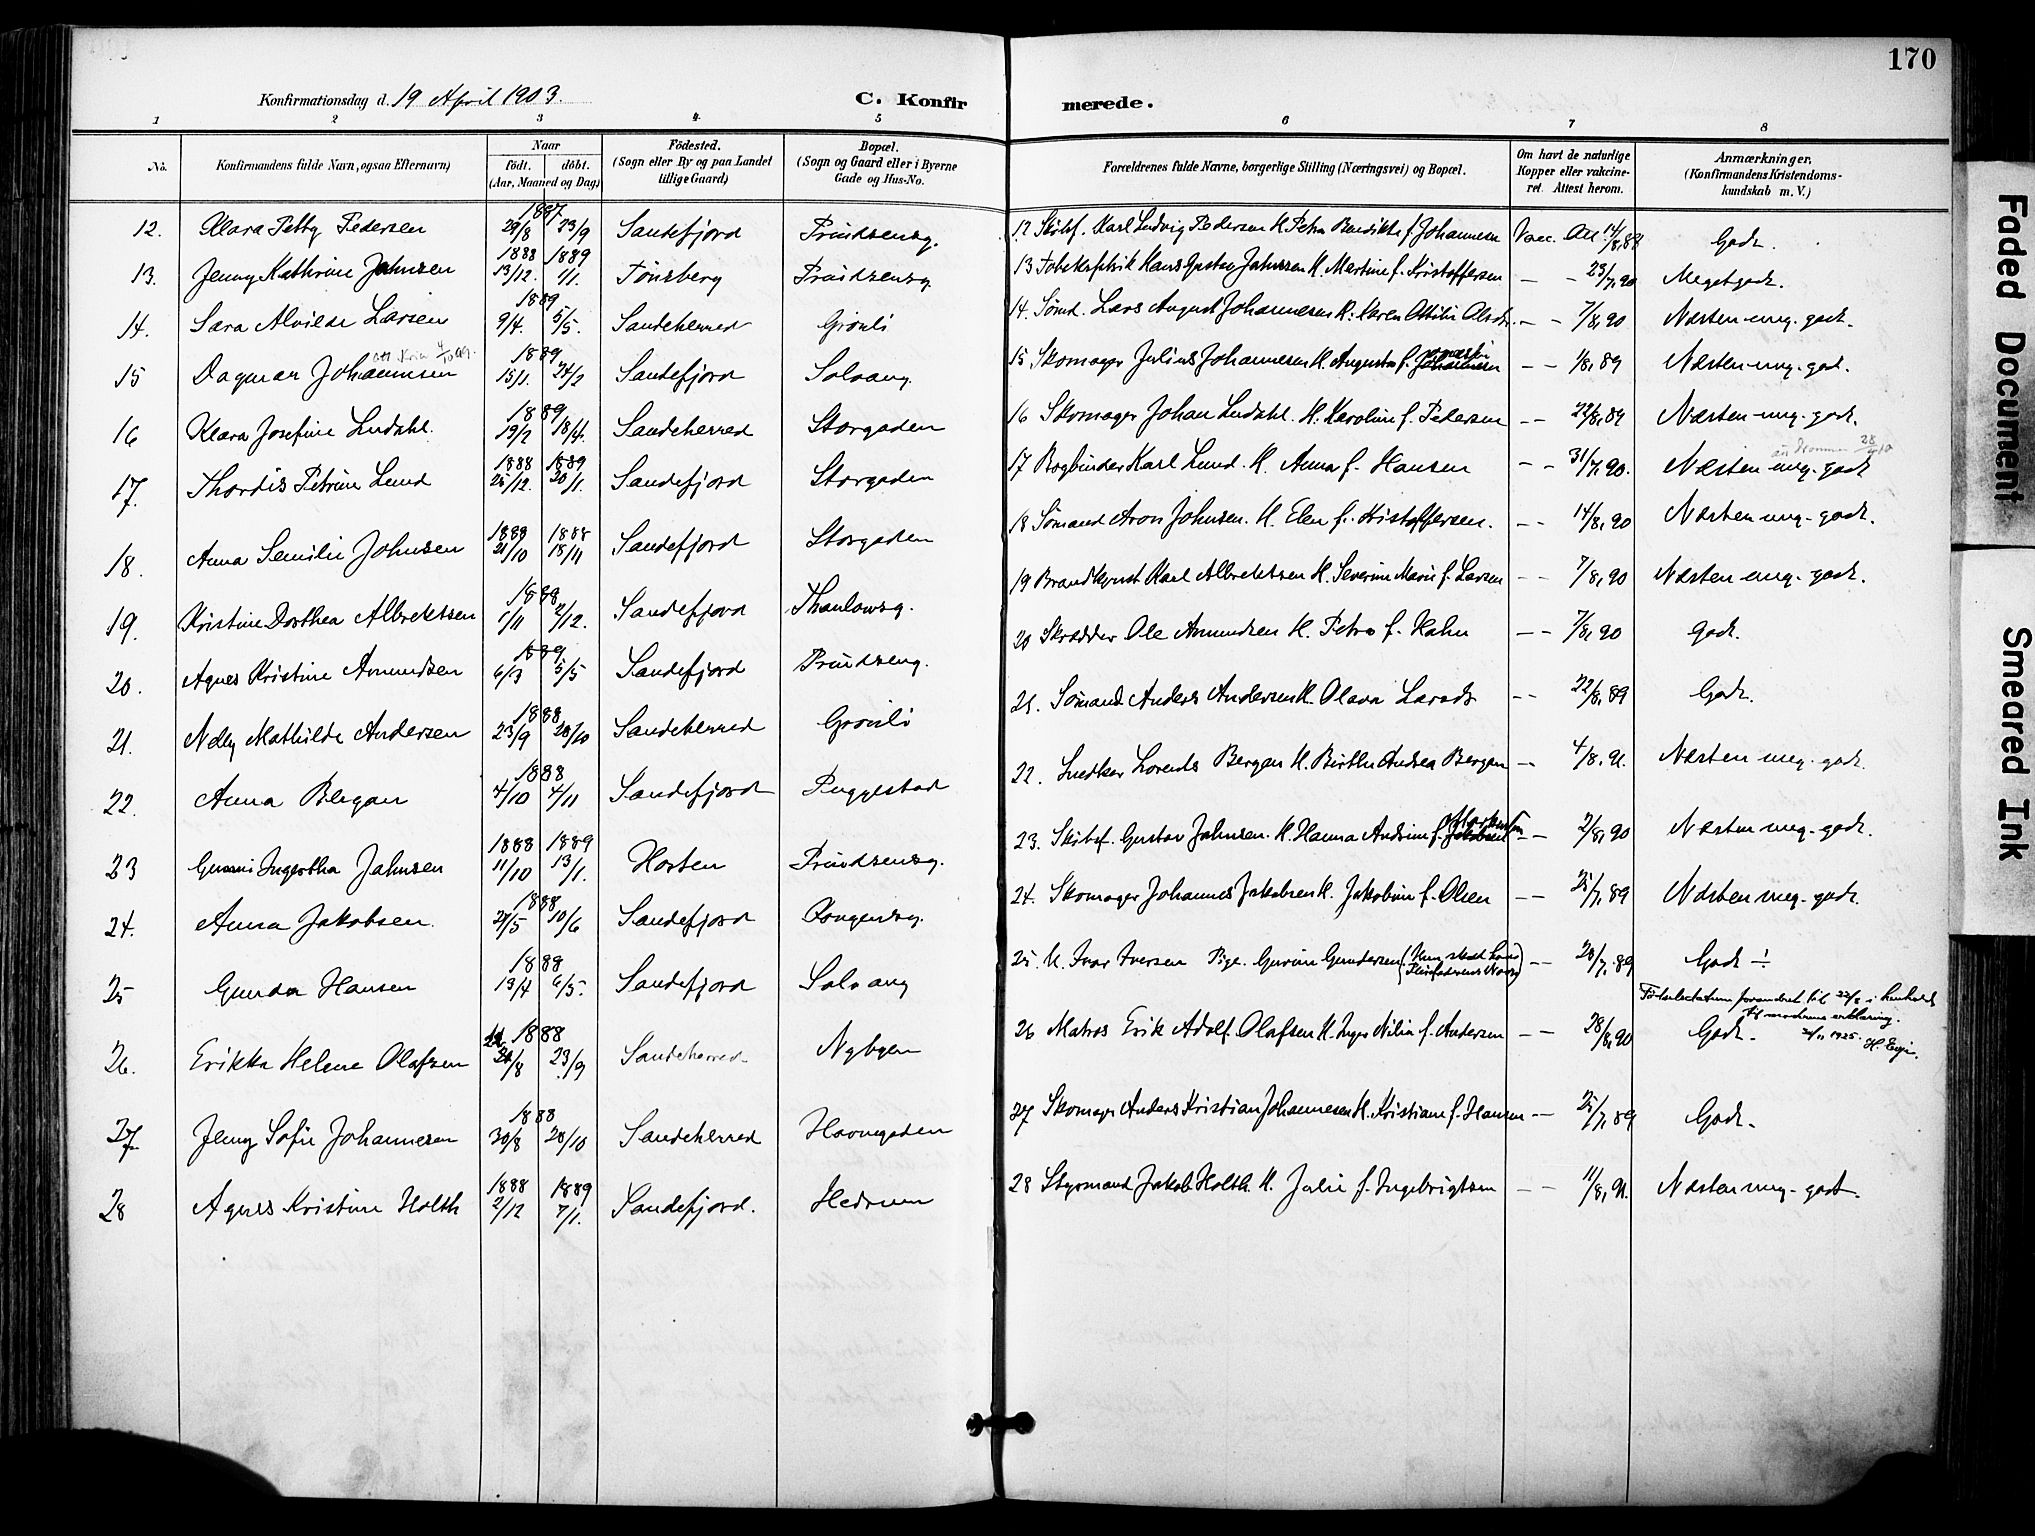 170
Konfirmationsdag d. 19 April 1903.
C. Konfirmerede.
1 2 3 4 5 6 7 8
No. Konfirmandens fulde Navn, ogsaa Efternavn) Naar födt. döbt. (Aar, Maaned og Dag) Födested. (Sogn eller By og paa Landet tillige Gaard) Bopæl. (Sogn og Gaard eller i Byerne Gade og Hus-No. Forældrenes fulde Navne, borgerlige Stilling (Næringsvei) og Bopæl. Om havt de naturlige Kopper eller vakcineret. Attest herom. Anmærkninger, (Konfirmandens Kristendomskundskab m. V.)
12. Klara Petty Pedersen 1887 29/8 23/9 Sandefjord Pründsensg. 12 Skibsf. Karl Ludvig Pedersen H. Petra Bendikte f. Johannesen Vacc. Att. Godt.
13. Jenny Kathrine Jahnsen 1888 13/12. 1889 1/1. Tönsberg Pründsensg. 13 Hans Gustav Jahnsen H. Martine f. Kristoffersen – – 23/7, 90 Megetgodt.
14. Sara Alvilde Larsen 1889 9/4. 5/5. Sandeherred Grönli 14. Sömd. Lars August Johannesen H. Karen Ottilie Olsdr. – – 7/8, 90 Næsten mg. godt.
15 Dagmar Johannesen 1889 15/1. 24/2 Sandefjord Solvang. 15 Skomager Julius Johannesen H. Augusta f. – – 1/8, 89 Næsten mg. godt.
16 Klara Josefine Lindahl. 1889 19/2 18/4. Sandeherred Storgaden 16 Skomager Johan Lindahl. H. Karoline f. Pedersen – – 22/8, 89 Næsten mg. godt.
17. Thordis Petrine Lund 1888 25/12. 1889 20/1. Sandefjord Storgaden 17 Bogbinder Karl Lund. H. Anna f. Hansen – – 31/7, 90. Næsten mg. godt
18. Anna Semilie Johnsen 1888 21/10 1888 18/11 Sandefjord Storgaden 18 Sömand Aron Johnsen. H. Elen f. Kristoffersen. – – 14/8, 90 Næsten mg. godt.
19. Kristine Dorthea Albrektsen 1888 1/11 2/12. Sandefjord Thaulowsg. 19 Brandkonst Karl Albrektsen H. Severine Marie f. Larsen – – 7/8, 90 Næsten mg. godt.
20. Agnes Kristine Amundsen 1889 6/3 5/5 Sandefjord Pründseng. 20 Skrædder Ole Amundsen H. Petra f. Hahn – – 7/8, 90 Godt.
21. Nelly Mathilde Andersen 1888 23/9 28/10 Sandeherred Grönli 21. Sömand Anders Andersen H. Olava Larsdr – – 22/8, 89 Godt.
22. Anna Bergan 1888 4/10 4/11 Sandefjord Puggestad 22. Snedker Lorents Bergan H. Birthe Andrea Bergan – – 4/8, 91. Næsten mg. godt.
23 Gunni Ingertha Jahnsen 1888 11/10 1889 13/1. Horten Pründsensg. 23. Skibsf. Gustav Jahnsen. H. Hanna Andrine f. – – 2/8, 90 Næsten mg. godt.
24. Anna Jakobsen. 1888 27/5 10/6 Sandefjord Kongensg. 24. Skomager Johannes Jakobsen H. Jakobine f. Olsen – – 25/7, 89 Næsten mg. godt.
25 Gunda Hansen 1888 13/4 6/5. Sandefjord Solvang 25. U. Ivar Iversen Pige. Gurine Gundersen – – 28/7, 89 Godt ÷
26. Erikka Helene Olafsen 1888 22 /8 23/9 Sandeherred Nybyen 26 Matros Erik Adolf Olafsen H. Inger Nilia f. Andersen – – 28/8, 90 Godt. Födselsdatum forandret til 22/8 i henhold til moderens erklæring. 1925.
27 Jenny Sofie Johannesen 1888 30/8 28/10 Sandeherred Havnegaden 27 Skomager Anders Kristian Johannesen H. Kristiane f. Hansen – – 25/7, 89 Godt.
28 Agnes Kristine Holth 1888 2/12 1889 7/1. Sandefjord. Hedrum 28 Styrmand Jakob Holth. H. Julie f. Ingebrigtsen – – 11/8, 91. Næsten mg. godt.
Faded Document
Smeared Ink